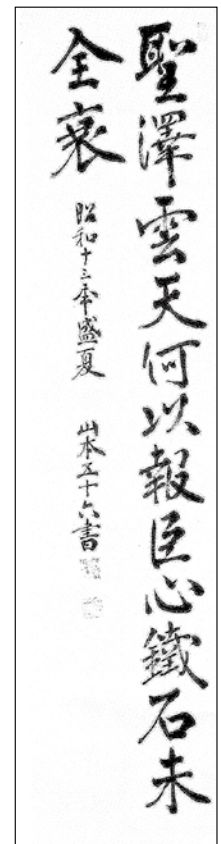 聖澤雲天何以報臣心鐵石未
全衰
昭和十三年盛夏 山本五十六書